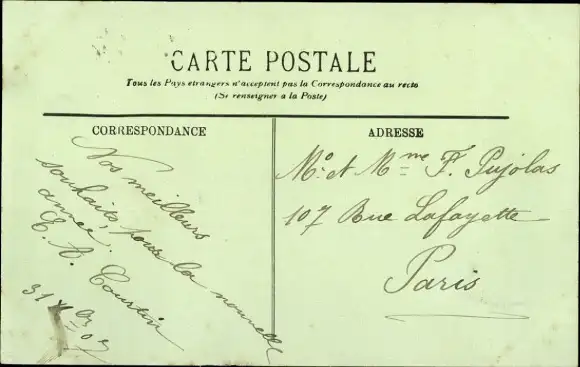 CARTE POSTALE
Tous les Pays etrangers n'acceptent pas la Correspondance au recto
(Se renseigner a la Poste)
CORRESPONDANCE
Nos meilleurs
souhaits, pour la nouvelle
année.
E. A. Courtin
31
07
ADRESSE
Mr. et Mme F. Pujolas
107 Rue Lafayette
Paris